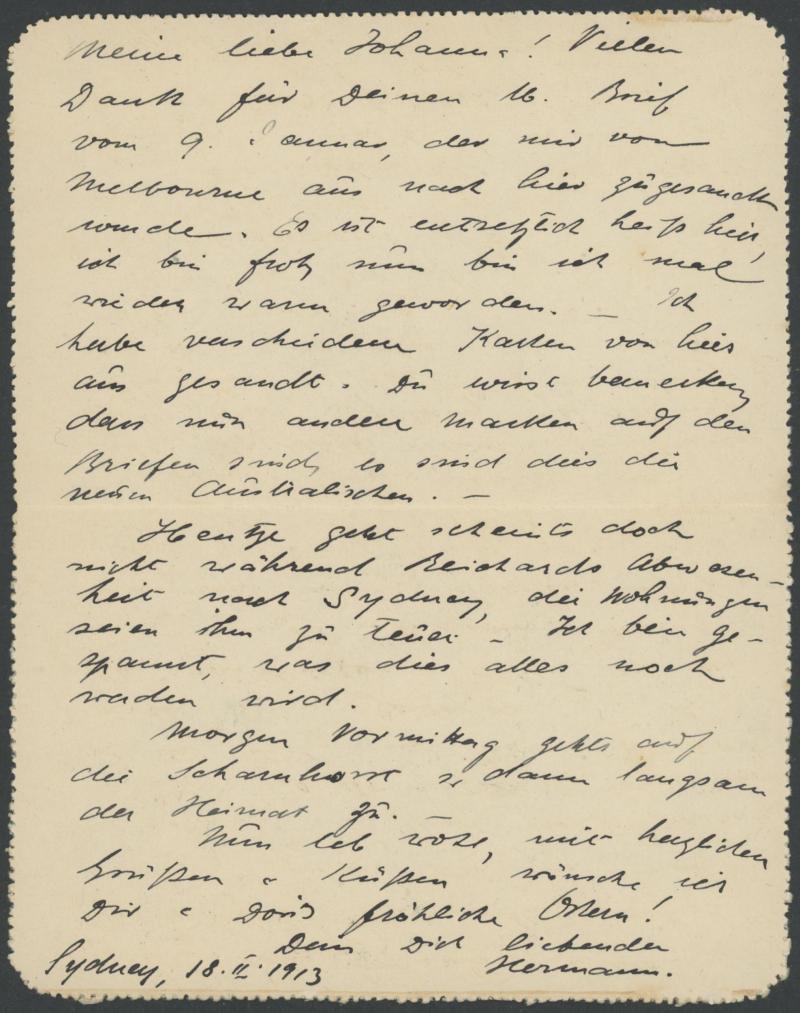 Meine liebe Johanna! Vielen
Dank für Deinen lb. Brief
vom 9. Januar, der mir von
Melbourne aus nach hier zugesandt
wurde. Es ist entsetzlich heiß hier,
ich bin froh nun bin ich mal
wieder warm geworden. — Ich
habe verschiedene Karten von hier
aus gesandt. Du wirst bemerken,
dass nun andere Marken auf den
Briefen sind, es sind dies die
neuen Australischen. —
Hentze geht scheints doch
nicht während Reichards Abwesen-
heit nach Sydney, die Wohnungen
seien ihm zu teuer — Ich bin ge-
spannt, was dies alles noch
werden wird.
Morgen Vormittag gehts auf
die Scharnhorst u. dann langsam
der Heimat zu.
Nun leb wohl, mit herzlichen
Grüßen u Küßen wünsche ich
Dir u Doris fröhliche Ostern!
Dein Dich liebender
Sydney, 18.II.1913 Hermann.